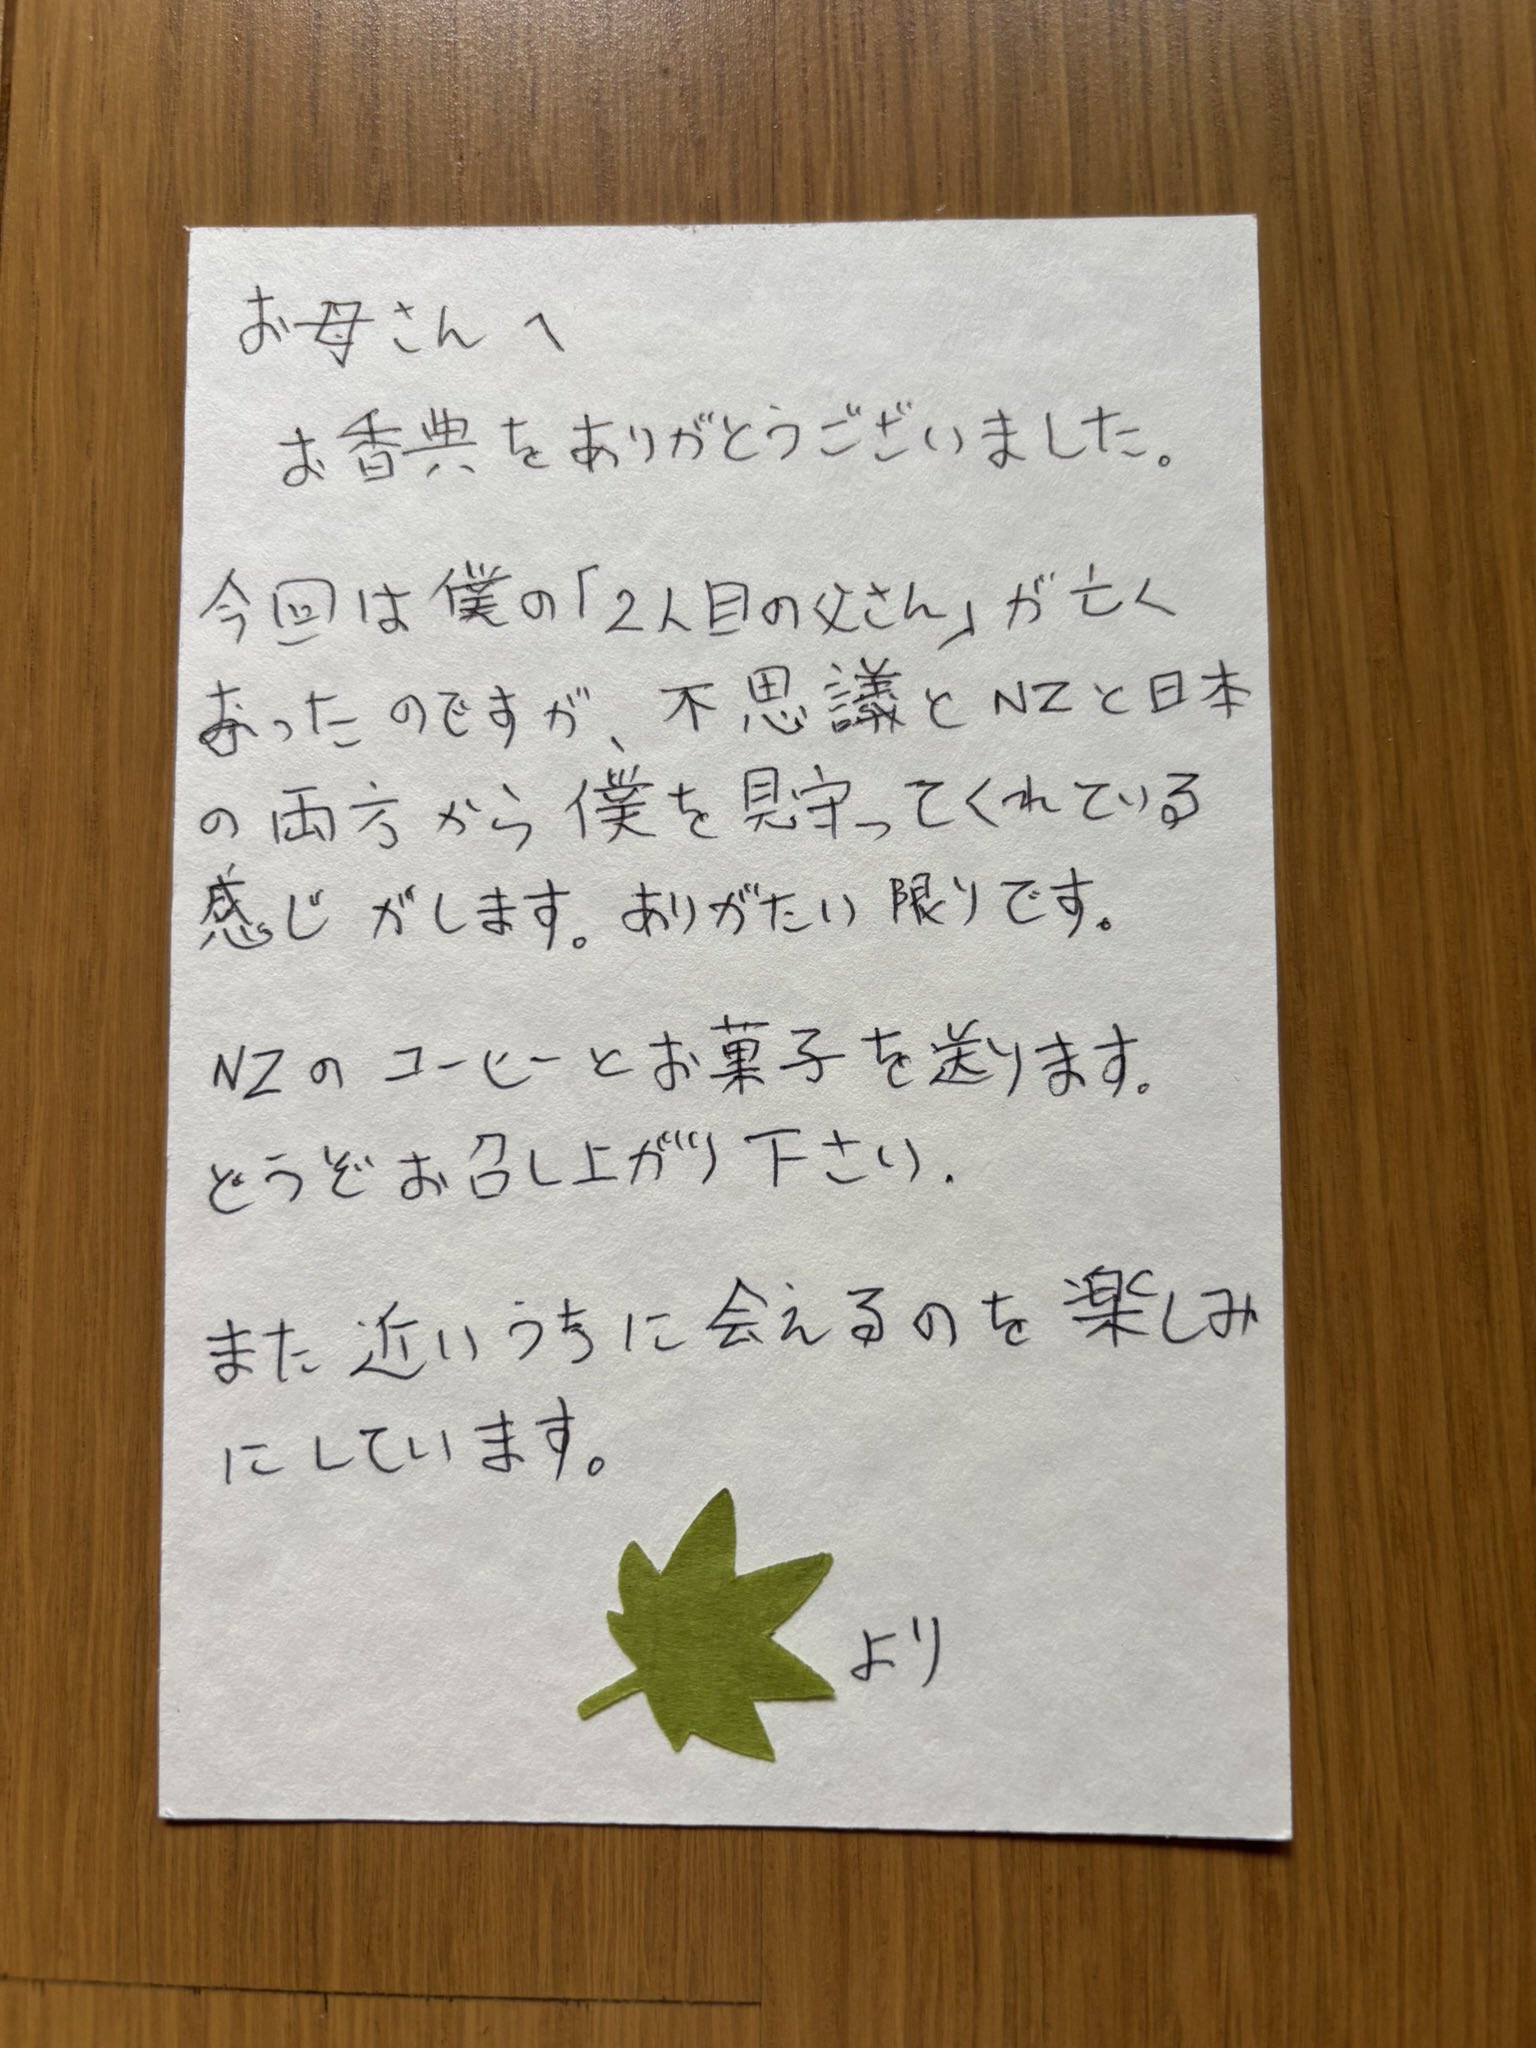 お母さんへ
お香典をありがとうございました。
今回は僕の「2人目の父さん」が亡く
なったのですが、不思議とNZと日本
の両方から僕を見守ってくれている
感じがします。ありがたい限りです。
NZのコーヒーとお菓子を送ります。
どうぞお召し上がり下さい.
また近いうちに会えるのを楽しみ
にしています。
より